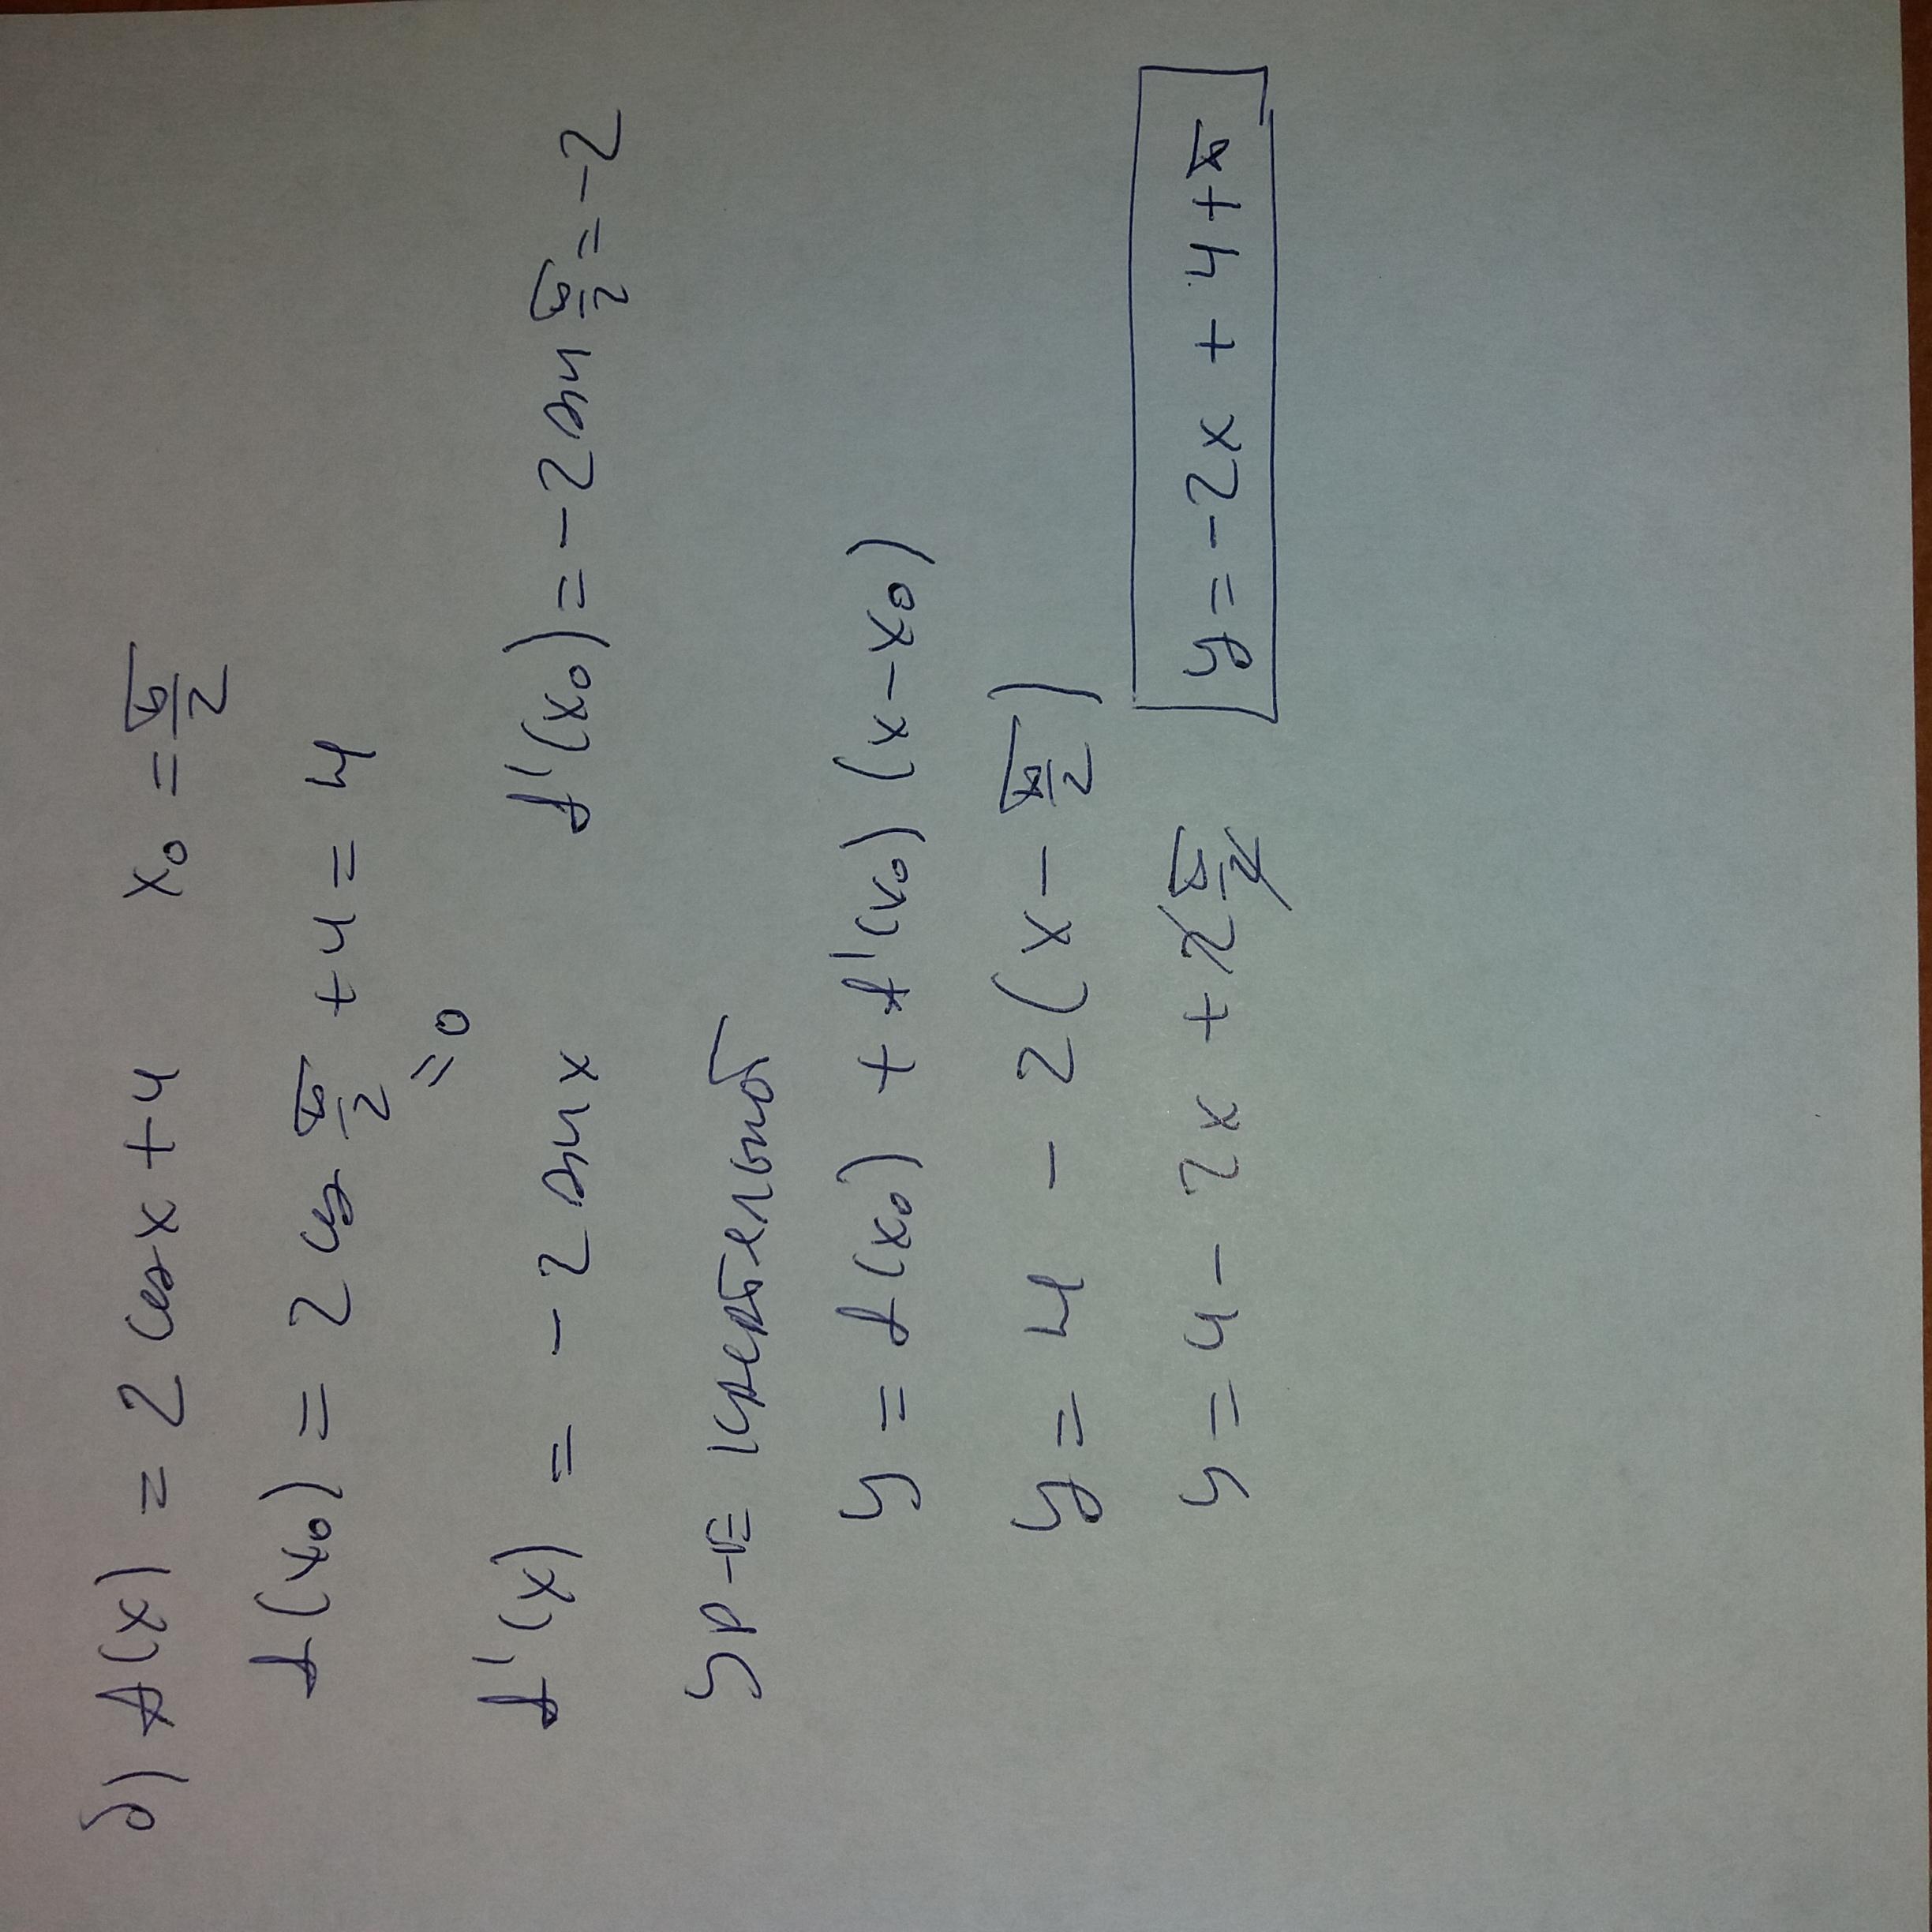 б) f(x) = 2 cos x + 4 x₀ = π/2
f(x₀) = 2 cos π/2 + 4 = 4
= 0
f'(x) = - 2 sin x f'(x₀) = - 2 sin π/2 = - 2
ур-е касательной
y = f(x₀) + f'(x₀) (x - x₀)
y = 4 - 2 (x - π/2)
y = 4 - 2x + 2 π/2 y = - 2x + 4 + π